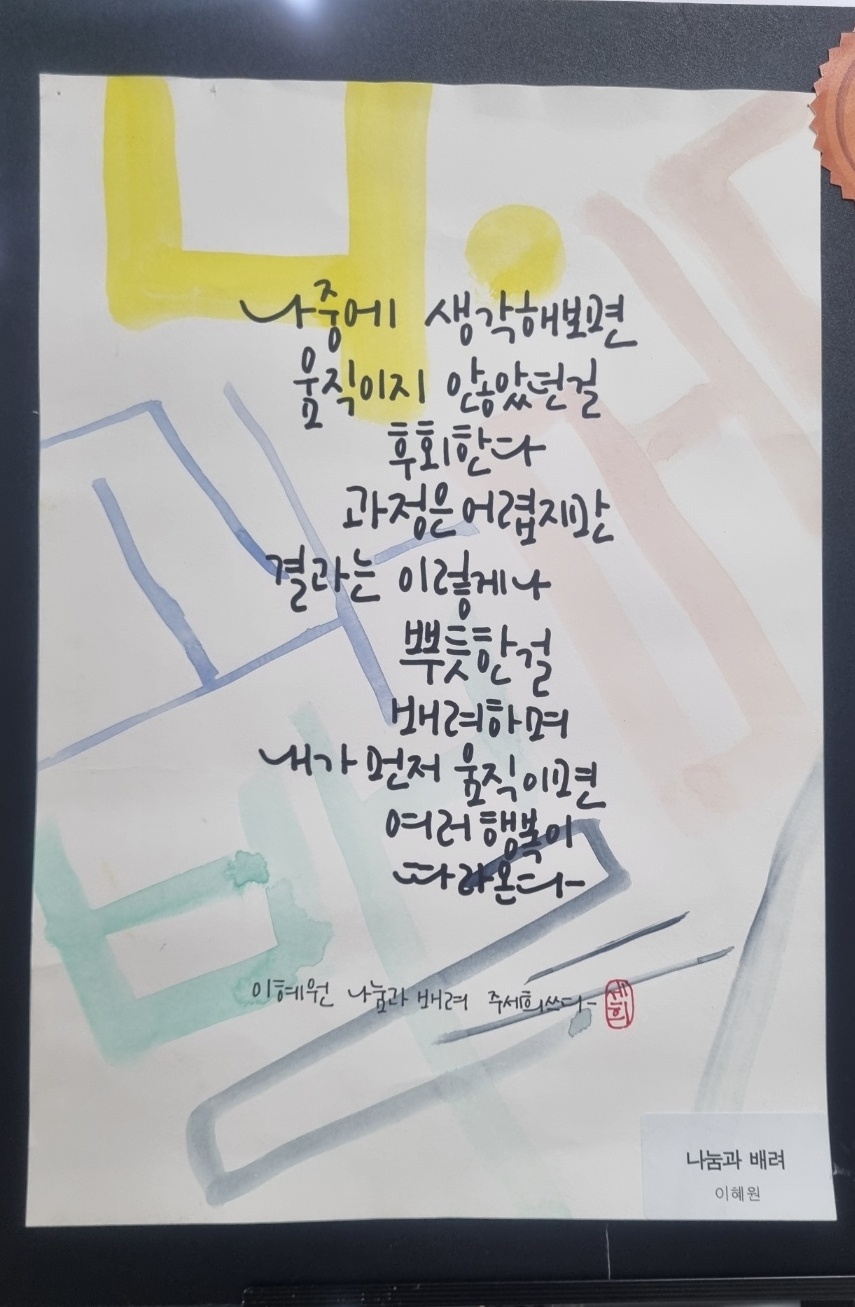 나중에 생각해보면
움직이지 않았던걸
후회한다
과정은 어렵지만
결과는 이렇게나
뿌듯한걸
배려하며
내가 먼저 움직이면
여러 행복이
따라온다
이혜원 나눔과 배려 주세희쓰다
세희
나눔과 배려
이혜원